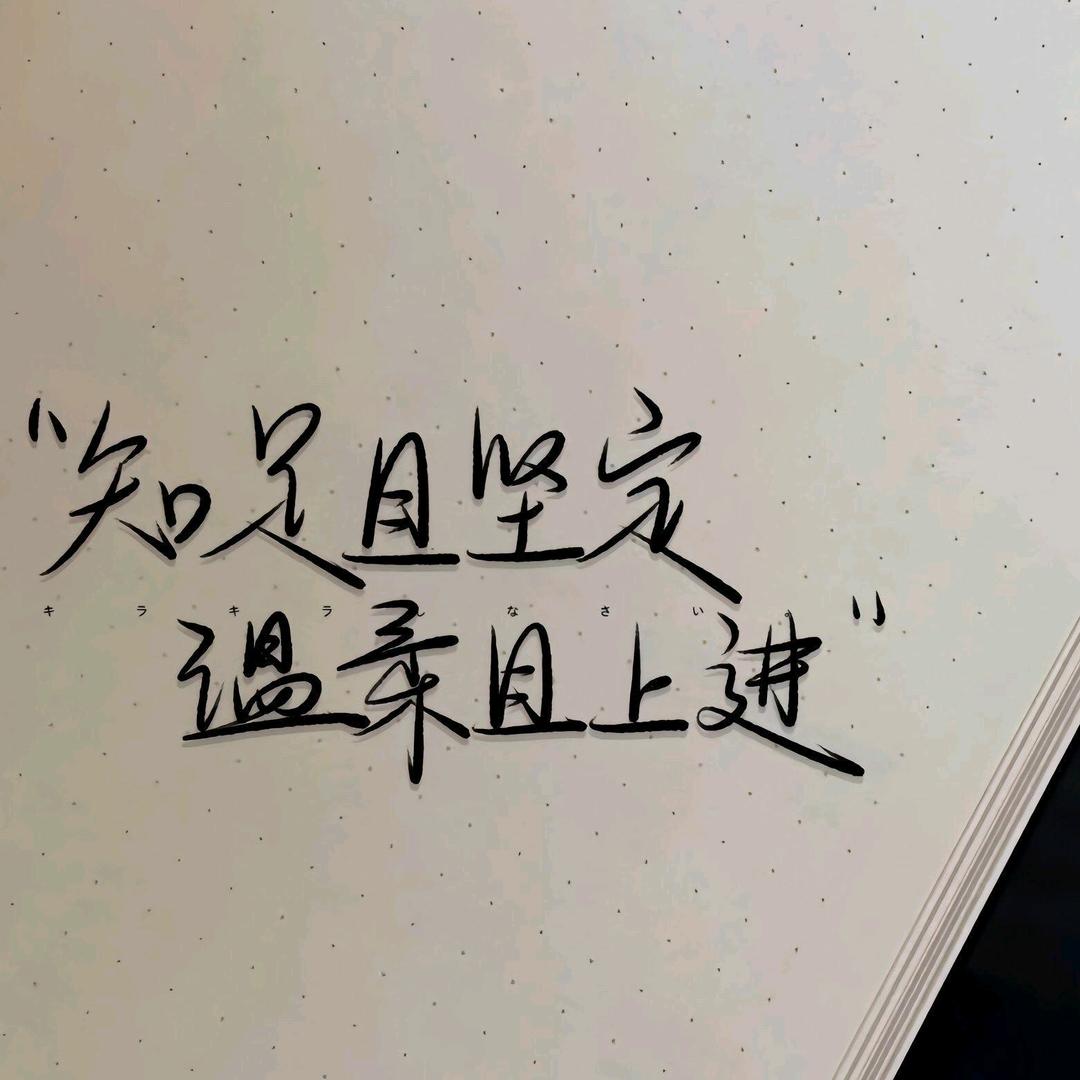 “知足且坚定
キラキラ なさい。
温柔且上进”